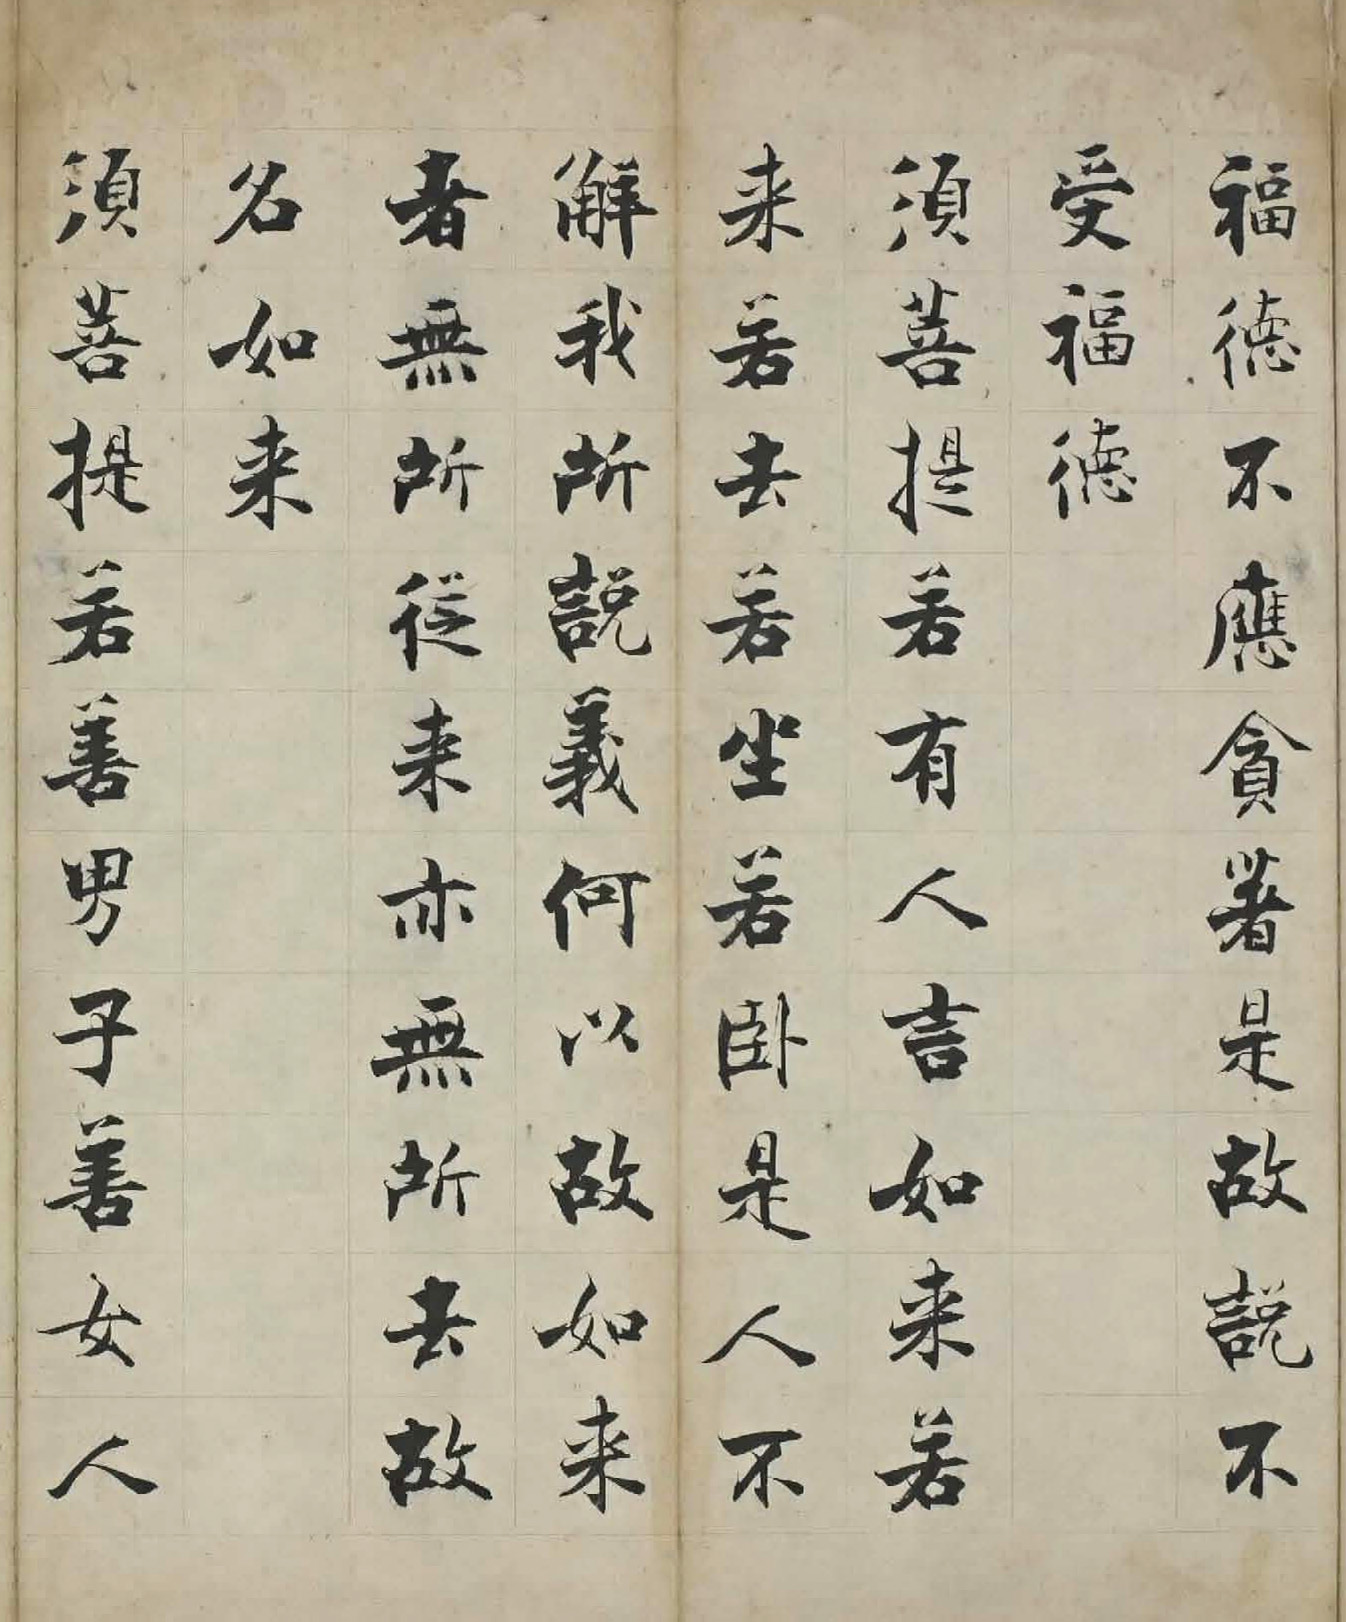 福德不應貪著是故說不
受福德
須菩提若有人言如来若
来若去若坐若卧是人不
解我所說義何以故如来
者無所從来亦無所去故
名如来
須菩提若善男子善女人